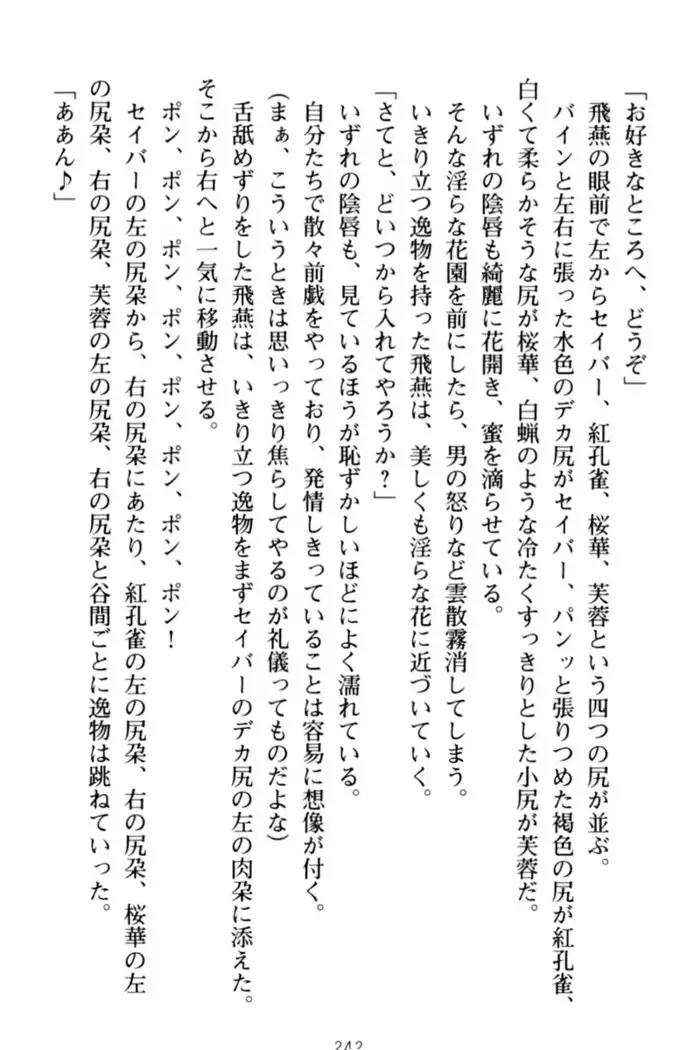 「お好きなところへ、どうぞ」
飛燕の眼前で左からセイバー、紅孔雀、桜華、芙蓉という四つの尻が並ぶ。
バインと左右に張った水色のデカ尻がセイバー、パンッと張りつめた褐色の尻が紅孔雀、
白くて柔らかそうな尻が桜華、白蝋のような冷たくすっきりとした小尻が芙蓉だ。
いずれの陰唇も綺麗に花開き、蜜を滴らせている。
そんな淫らな花園を前にしたら、男の怒りなど雲散霧消してしまう。
いきり立つ逸物を持った飛燕は、美しくも淫らな花に近づいていく。
「さてと、どいつから入れてやろうか?」
いずれの陰唇も、見ているほうが恥ずかしいほどによく濡れている。
自分たちで散々前戯をやっており、発情しきっていることは容易に想像が付く。
(まぁ、こういうときは思いっきり焦らしてやるのが礼儀ってものだよな)
舌舐めずりをした飛燕は、いきり立つ逸物をまずセイバーのデカ尻の左の肉朶に添えた。
そこから右へと一気に移動させる。
ポン、ポン、ポン、ポン、ポン、ポン、ポン!
セイバーの左の尻朶から、右の尻朶にあたり、紅孔雀の左の尻朶、右の尻朶、桜華の左
の尻朶、右の尻朶、芙蓉の左の尻朶、右の尻朶と谷間ごとに逸物は跳ねていった。
「ああん♪」
242